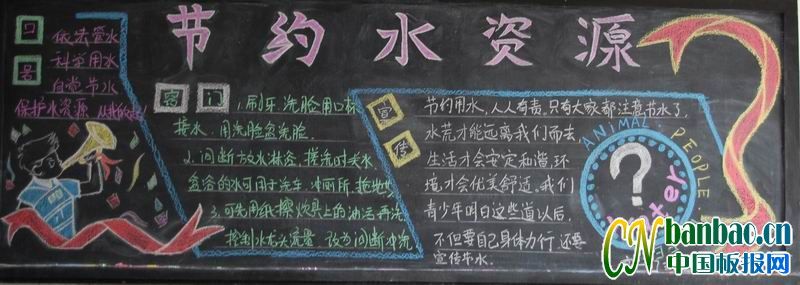 节约水资源
口号
依法管水
科学用水
自觉节水
保护水资源
窍门
1.刷牙、洗脸用口杯
接水,用洗脸盆洗脸。
2.间断放水淋浴,搓洗时关水,
盆浴的水可用于洗车、冲厕所、拖地等
3.可先用纸擦炊具上的油污再洗
控制水龙头流量,改为间断冲洗
宣传
节约用水,人人有责,只有大家都注意节水了,
水荒才能远离我们而去,
生活才会安定和谐,环
境才会优美舒适,我们
青少年明白这些道以后,
不但要自己身体力行,还要
宣传节水。
ANIMAL PEOPLE
?
water
CN banbao.cn
中国板报网